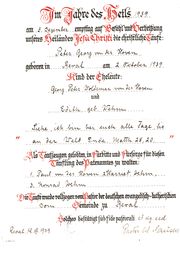 Im Jahre des Heils 1939
am 3. Dezember empfing auf Befehl und Verheißung
unseres Heilandes Jesu Christi die christliche Taufe
Peter Georg von der Hoven
geboren in Reval am 2. Oktober 1939
Kind der Eheleute:
Georg Peter Woldemar von der Hoven und
Edith geb. Böhm
Siehe, ich bin bei euch alle Tage, bis
an der Welt Ende. Matth. 28, 20.
Als Taufzeugen gelobten, in Fürbitte und Fürsorge für diesen
Täufling des Patenamtes zu walten:
1. Paul von der Hoven 2.
3. Konrad
Die Taufe wurde vollzogen vom Pastor der deutschen evangelisch-lutherischen
Gemeinde zu Reval
Solches bestätigt sub fide pastorali
Reval 1939
Pastor